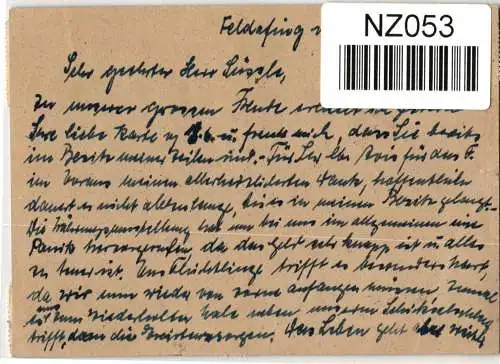 Feldafing
NZ053
Sehr geehrter Herr
In unserer grossen Freude
Ihre liebe Karte v. 8.6. u. freue mich, dass Sie bereits
im Besitze meiner Zeilen sind. - Für Ihr
im Voraus meinen allerherzlichsten Dank, hoffentlich
dauert es nicht allzulange, bis es in meinen Besitz gelangt.
Die Währungsumstellung hat nun bei uns im allgemeinen eine
Panik hervorgerufen, da das Geld sehr knapp ist u. alles
so teuer ist. Uns Flüchtlinge trifft es besonders hart,
da wir nun wieder von vorne anfangen müssen
zum wiederholten Male neben unserem
trifft, dann die Existenzsorgen. Das Leben geht aber weiter